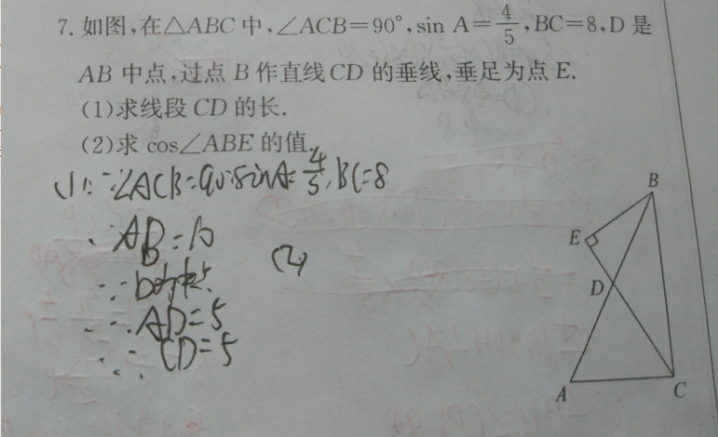 7. 如图,在△ABC中,∠ACB=90°,sin A=4/5,BC=8,D是
AB中点,过点B作直线CD的垂线,垂足为点E.
(1)求线段CD的长.
(2)求 cos∠ABE 的值.
(1): ∵∠ACB=90° sinA=4/5, BC=8
∴AB=10
∵D为中点
∴AD=5
∴CD=5
(2)
B
E
D
A
C